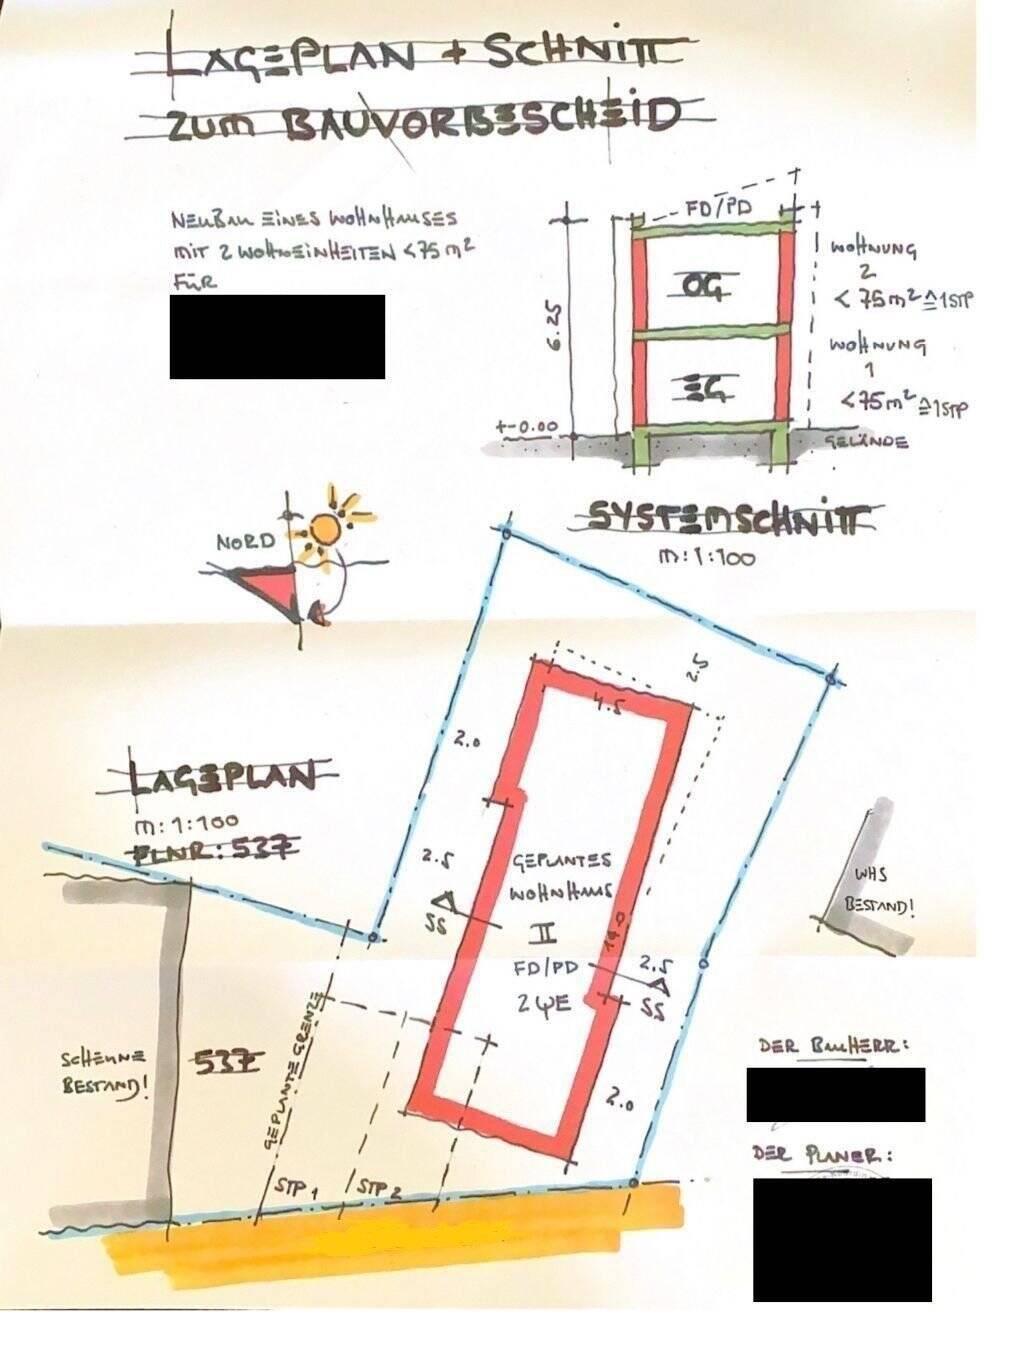 LAGEPLAN + SCHNITT
ZUM BAUVORBESCHEID
NEUBAU EINES WOHNHAUSES
MIT 2 WOHNEINHEITEN < 75 m²
FÜR
FD/PD
6.25
OG
EG
+-0.00
WOHNUNG
2
< 75 m² ≙ 1 STP
WOHNUNG
1
< 75 m² ≙ 1 STP
GELÄNDE
SYSTEMSCHNITT
M: 1:100
NORD
LAGEPLAN
M: 1:100
FLNR: 537
2.5
4.5
2.0
2.5
SS
GEPLANTES
WOHNHAUS
II
FD/PD
2 WE
14.0
2.5
SS
2.0
WHS
BESTAND!
SCHEUNE
BESTAND!
537
GEPLANTE GRENZE
STP 1
STP 2
DER BAUHERR:
DER PLANER: